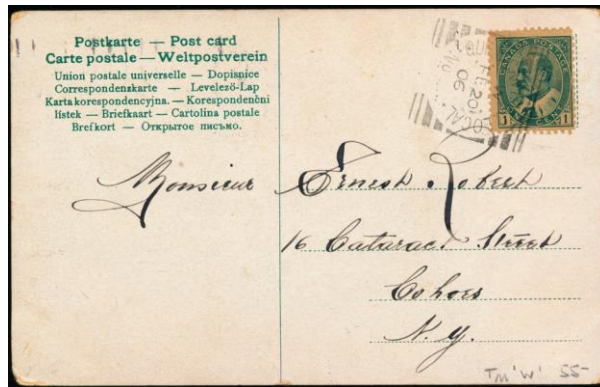 Postkarte — Post card
Carte postale — Weltpostverein
Union postale universelle — Dopisnice
Correspondenzkarte — Levelező-Lap
Karta korespondencyjna. — Korespondenční
lístek — Briefkaart — Cartolina postale
Brefkort — Открытое письмо.
CANADA POSTAGE
1 1
FE 20
06
LOCAL
Monsieur Ernest Robert
16 Cataract Street
Cohoes
N. Y.
TM 'W' 55-